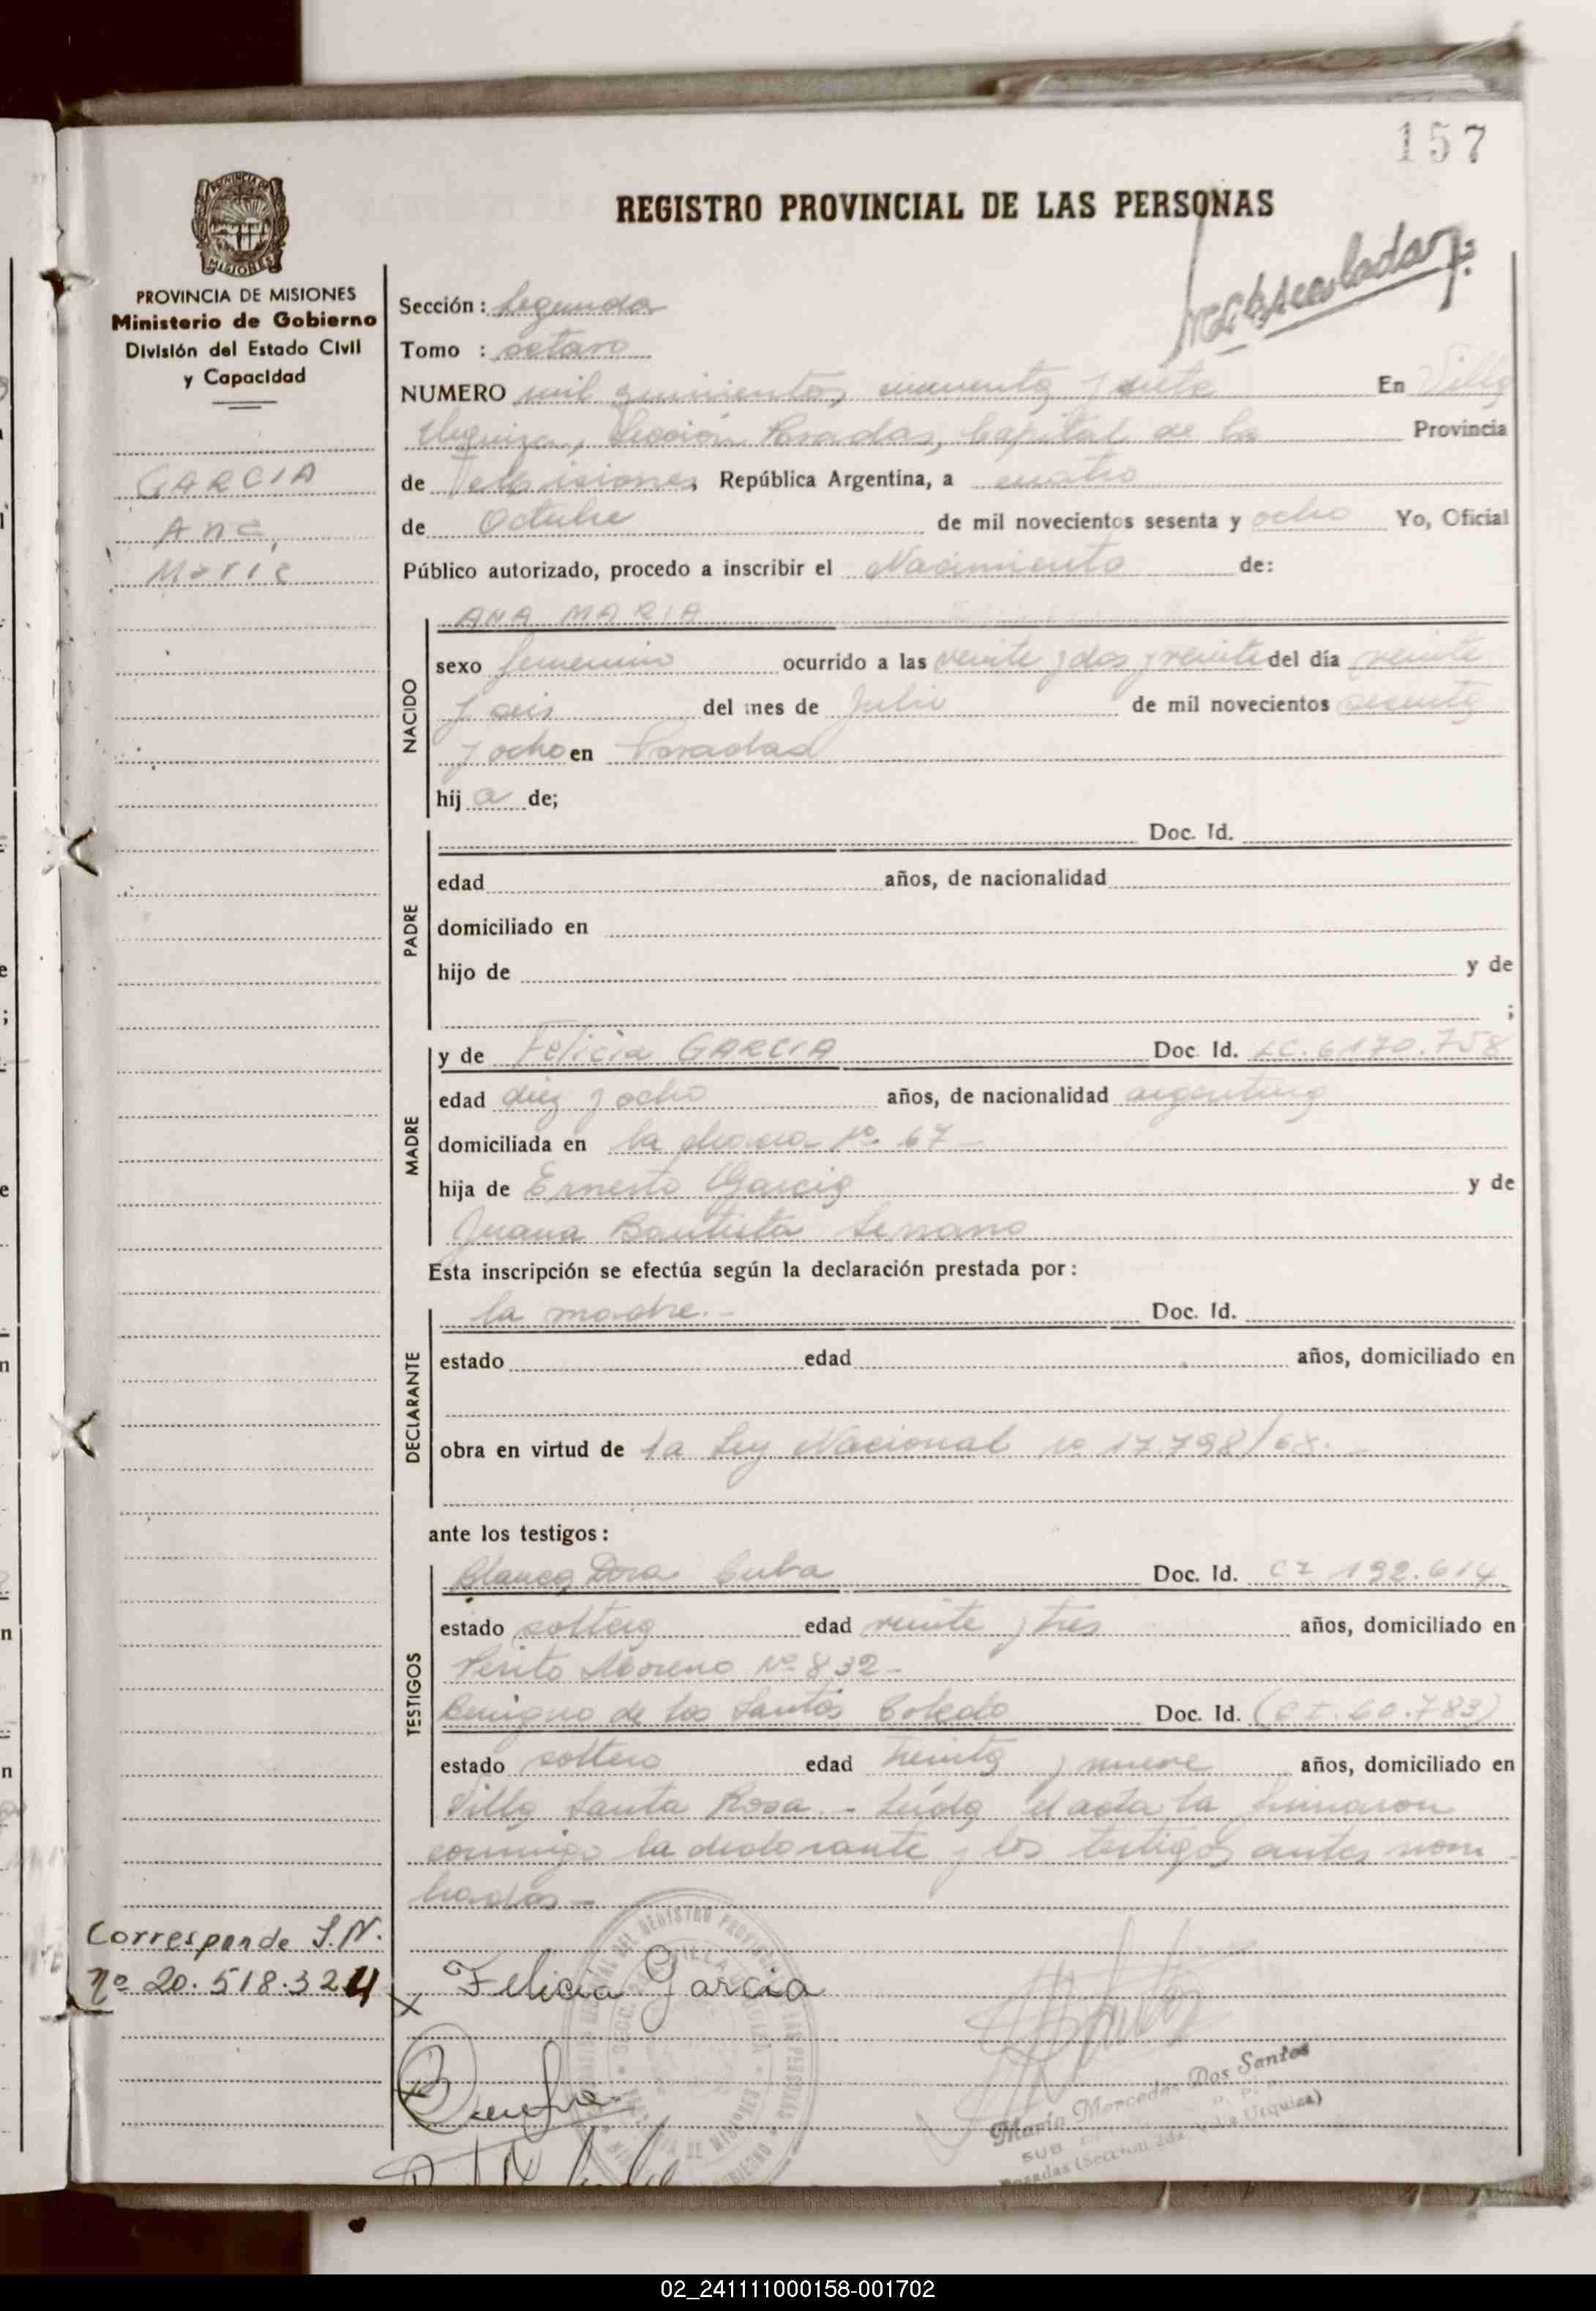 157
PROVINCIA DE
MISIONES
REGISTRO PROVINCIAL DE LAS PERSONAS
PROVINCIA DE MISIONES
Ministerio de Gobierno
División del Estado Civil
y Capacidad
GARCIA
Ana,
Maria
Sección: Segunda
Tomo : octavo
NUMERO mil quinientos, cincuenta y siete En Villa
Urquiza, Sección Posadas, Capital de la Provincia
de Misiones, República Argentina, a cuatro
de Octubre de mil novecientos sesenta y ocho Yo, Oficial
Público autorizado, procedo a inscribir el Nacimiento de:
NACIDO
ANA MARIA
sexo femenino ocurrido a las veinte y dos y veinte del día veinte
y seis del mes de Julio de mil novecientos sesenta
y ocho en Posadas
hij a de;
PADRE
Doc. Id.
edad años, de nacionalidad
domiciliado en
hijo de y de
;
MADRE
y de Felicia GARCIA Doc. Id. LC. 6170.758
edad diez y ocho años, de nacionalidad argentina
domiciliada en la chacra Nº 67 -
hija de Ernesto Garcia y de
Juana Bautista Serrano
Esta inscripción se efectúa según la declaración prestada por:
DECLARANTE
la madre.- Doc. Id.
estado edad años, domiciliado en
obra en virtud de la Ley Nacional nº 17.798/68.-
ante los testigos:
TESTIGOS
Blanca Dora Cuba Doc. Id. CI 192.614
estado soltera edad veinte y tres años, domiciliado en
Perito Moreno Nº 832-
Benigno de los Santos Toledo Doc. Id. (CI. 60.783)
estado soltero edad treinta y nueve años, domiciliado en
Villa Santa Rosa.- Leída el acta la firmaron
conmigo la declarante y los testigos antes nom
brados-
Corresponde I.N.
nº 20.518.324
x Felicia Garcia
Maria Mercedes Dos Santos
SUB
Posadas (Sección 2da. Urquiza)
02_241111000158-001702